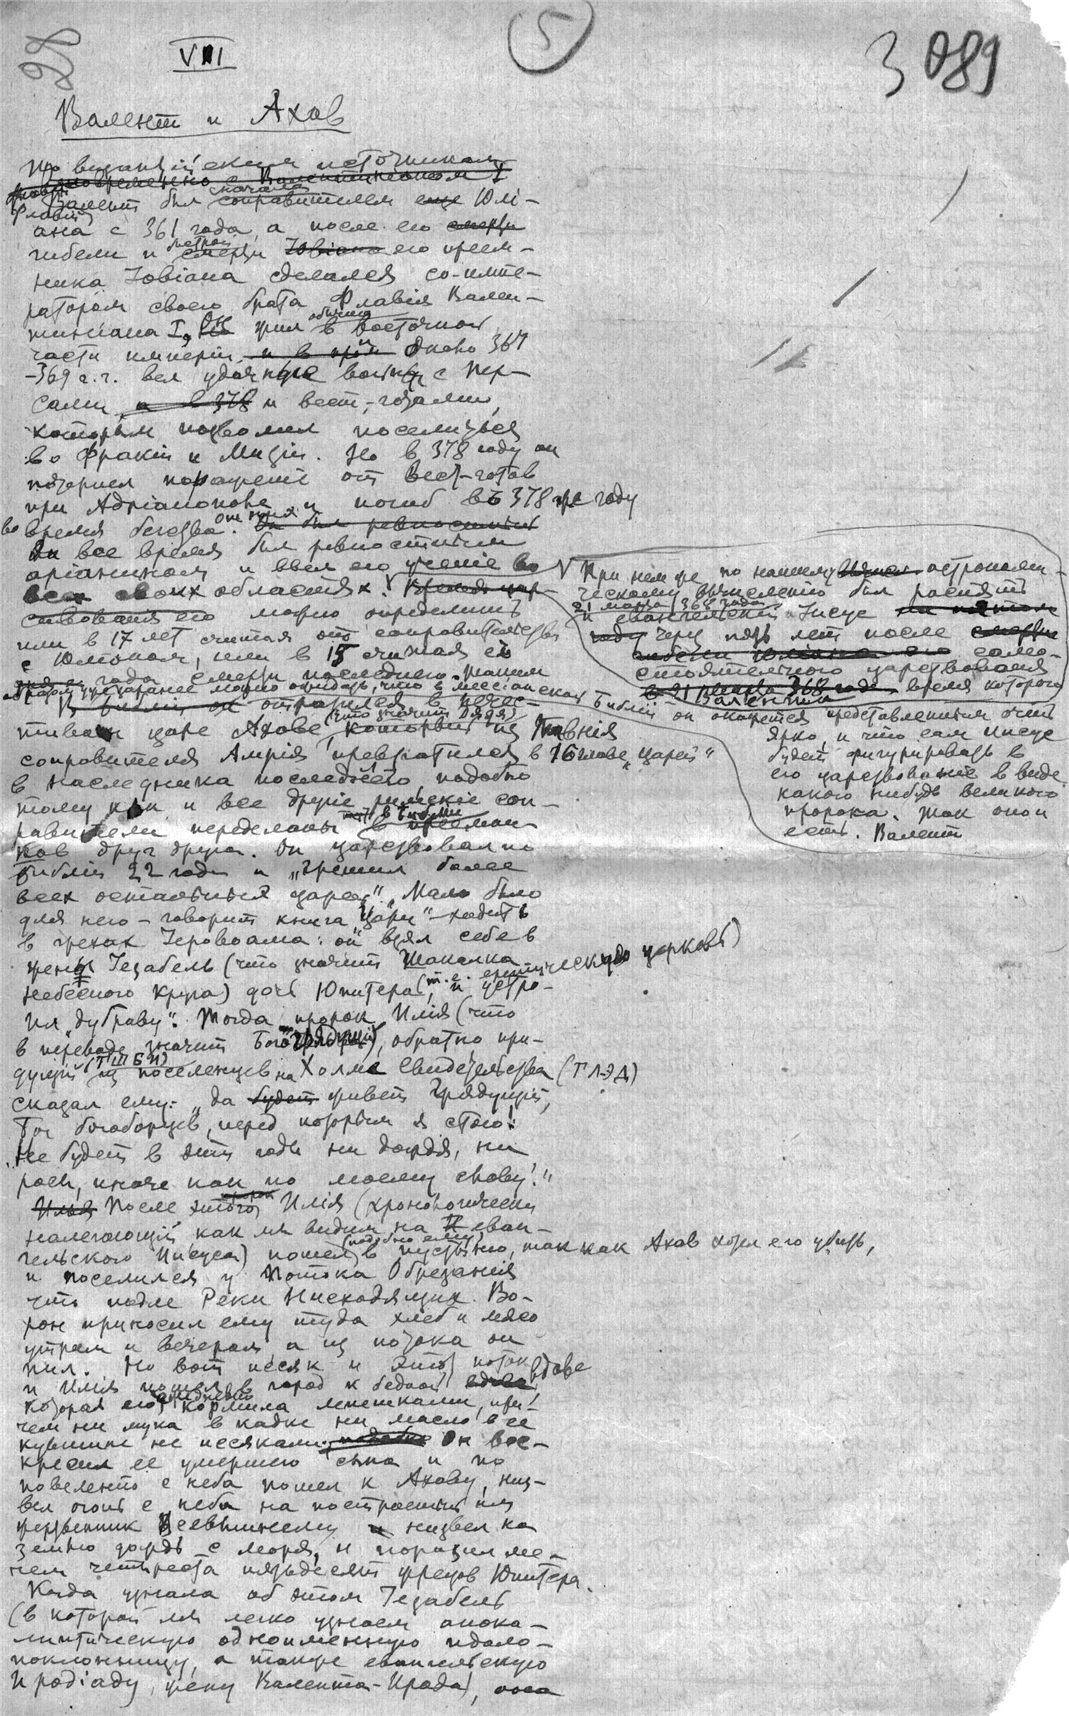 28
VIII
5
3 089
Валент и Ахав
По византійским источникам
одновременно с Валентинианом I
Флавій Валент был сначала соправителем еще Юлі-
ана с 361 года, а после его смерти
гибели и смерти Іовіана его преем-
ника Іовіана сделался со-импе-
ратором своего брата Флавія Вален-
тиніана I, Он жил обычно в восточной
части имперіи и в около 367
-369 г.г. вел удачную войну с Пер-
сами, а в 378 и вест-готами,
которым позволил поселиться
во Фракіи и Мизіи. Но в 378 году он
потерпел пораженіе от вест-готов
при Адріанополе и погиб въ 378 же году
во время бегства. Он был ревностным
Он все время был ревностным
аріанином и ввел его ученіе во
всех своих областях. V Время цар-
ствованія его можно определить
или в 17 лет считая от соправительства
с Юліаном, или в 15 считая с
года смерти последнего. Таким
образом уже заранее можно ожидать, что в мессіанской Библіи он
В библіи он отразился в нечес-
тивом царе Ахаве (что значит Дядя) который из
соправителя Амврія превратился в 16 главе „Царей"
в наследника последнего подобно
тому как и все другіе римскіе соп-
равители переделаны в Библіи в преемни-
ков друг друга. Он царствовал по
библіи 22 года и „грешил более
всех остальных царей". „Мало было
для него – говорит книга „Цари" – ходить
в грехах Іеровоама: он взял себе в
жены Іезабель (что значит
небесного Круга) дочь Юпитера (т.е. еретическую церковь)
и устро-
ил „дубраву". Тогда пророк Илія (что
в переводе значит Бог Грядущій), обратно при-
дущій (ТШБИ) из поселенцев на Холме Свидетельства (ГЛ-ЭД)
сказал ему: „да будет живет Грядущій,
Бог богоборцев, перед которым я стою!
Не будет в эти годы ни дождя, ни
росы, иначе как по моему слову!"
Илья После этого пророк Илія (хронологически
налегающій как мы видим на еван-
гельского Иисуса) пошел (подобно ему) в пустыню, так как Ахав хотел его убить,
и поселился у Потока Обрезанія
что подле Реки Нисходящих. Во-
рон приносил ему туда хлеб и мясо
утром и вечером а из потока он
пил. Но вот иссяк и этот поток
и Илія пошел в город к бедной вдове
которая его кормила лепешками, при-
чем ни мука в кадке ни масло в ее
кувшине не иссякали. Он вос-
кресил ее умершего сына и по
повеленію с неба пошел к Ахаву, низ-
вел огонь с неба на построенный им
жертвенник Всевышнему и низвел на
землю дождь с моря, и поразил ме-
чем четыреста пятьдесят жрецов Юпитера.
Когда узнала об этом Іезабель
(в которой мы легко узнаем апока-
липтическую одноименную идоло-
поклонницу, а также евангельскую
Иродіаду, жену Валента-Ирода),
V При нем же по нашему астрономи-
ческому вычисленію был распят
21 марта 368 года
и евангельскій Іисус
году через пять лет после смерти
гибели Юліана его само-
стоятельного царствованія
в 21 марта 368 года время которого
Валентом
окажется представленным очень
ярко и что сам Іисус
будет фигурировать в
его царствованіе в виде
какого нибудь великого
пророка. Так оно и
есть. Валент